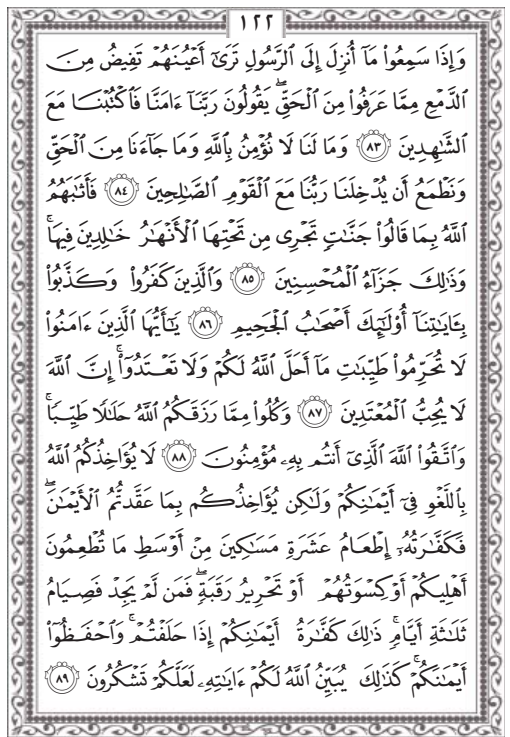 ١٢٢
وَإِذَا سَمِعُوا۟ مَآ أُنزِلَ إِلَى ٱلرَّسُولِ تَرَىٰٓ أَعْيُنَهُمْ تَفِيضُ مِنَ
ٱلدَّمْعِ مِمَّا عَرَفُوا۟ مِنَ ٱلْحَقِّ ۖ يَقُولُونَ رَبَّنَآ ءَامَنَّا فَٱكْتُبْنَا مَعَ
ٱلشَّٰهِدِينَ ٨٣ وَمَا لَنَا لَا نُؤْمِنُ بِٱللَّهِ وَمَا جَآءَنَا مِنَ ٱلْحَقِّ
وَنَطْمَعُ أَن يُدْخِلَنَا رَبُّنَا مَعَ ٱلْقَوْمِ ٱلصَّٰلِحِينَ ٨٤ فَأَثَٰبَهُمُ
ٱللَّهُ بِمَا قَالُوا۟ جَنَّٰتٍ تَجْرِى مِن تَحْتِهَا ٱلْأَنْهَٰرُ خَٰلِدِينَ فِيهَا ۚ
وَذَٰلِكَ جَزَآءُ ٱلْمُحْسِنِينَ ٨٥ وَٱلَّذِينَ كَفَرُوا۟ وَكَذَّبُوا۟
بِـَٔايَٰتِنَآ أُو۟لَٰٓئِكَ أَصْحَٰبُ ٱلْجَحِيمِ ٨٦ يَٰٓأَيُّهَا ٱلَّذِينَ ءَامَنُوا۟
لَا تُحَرِّمُوا۟ طَيِّبَٰتِ مَآ أَحَلَّ ٱللَّهُ لَكُمْ وَلَا تَعْتَدُوٓا۟ ۚ إِنَّ ٱللَّهَ
لَا يُحِبُّ ٱلْمُعْتَدِينَ ٨٧ وَكُلُوا۟ مِمَّا رَزَقَكُمُ ٱللَّهُ حَلَٰلًا طَيِّبًا ۚ
وَٱتَّقُوا۟ ٱللَّهَ ٱلَّذِىٓ أَنتُم بِهِۦ مُؤْمِنُونَ ٨٨ لَا يُؤَاخِذُكُمُ ٱللَّهُ
بِٱللَّغْوِ فِىٓ أَيْمَٰنِكُمْ وَلَٰكِن يُؤَاخِذُكُم بِمَا عَقَّدتُّمُ ٱلْأَيْمَٰنَ ۖ
فَكَفَّٰرَتُهُۥٓ إِطْعَامُ عَشَرَةِ مَسَٰكِينَ مِنْ أَوْسَطِ مَا تُطْعِمُونَ
أَهْلِيكُمْ أَوْ كِسْوَتُهُمْ أَوْ تَحْرِيرُ رَقَبَةٍ ۖ فَمَن لَّمْ يَجِدْ فَصِيَامُ
ثَلَٰثَةِ أَيَّامٍ ۚ ذَٰلِكَ كَفَّٰرَةُ أَيْمَٰنِكُمْ إِذَا حَلَفْتُمْ ۚ وَٱحْفَظُوٓا۟
أَيْمَٰنَكُمْ ۚ كَذَٰلِكَ يُبَيِّنُ ٱللَّهُ لَكُمْ ءَايَٰتِهِۦ لَعَلَّكُمْ تَشْكُرُونَ ٨٩